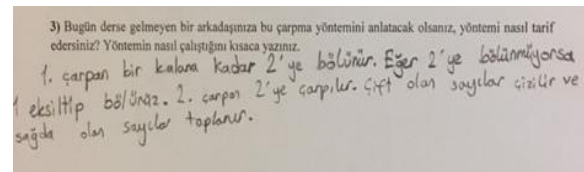 3) Bugün derse gelmeyen bir arkadaşınıza bu çarpma yöntemini anlatacak olsanız, yöntemi nasıl tarif
edersiniz? Yöntemin nasıl çalıştığını kısaca yazınız.
1. çarpan bir kalana kadar 2'ye bölünür. Eğer 2'ye bölünmüyorsa
1 eksiltip bölünüz. 2. çarpan 2'ye çarpılır. Çift olan sayılar çizilir ve
sağda olan sayılar toplanır.